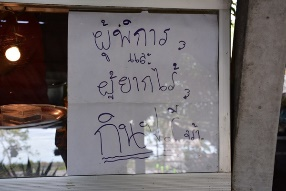 ผู้พิการ,
และ
ผู้ยากไร้,
กินฟรี